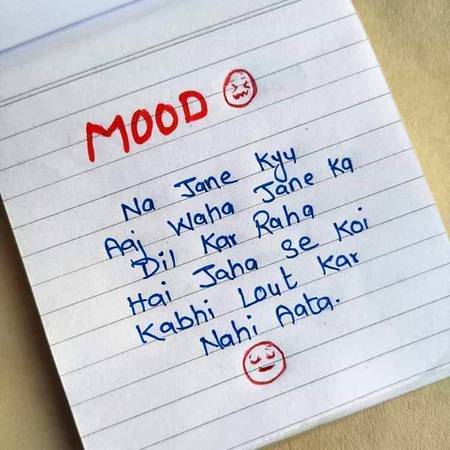 MOOD
Na Jane Kyu
Aaj Waha Jane Ka
Dil Kar Raha
Hai Jaha Se Koi
Kabhi Lout Kar
Nahi Aata.